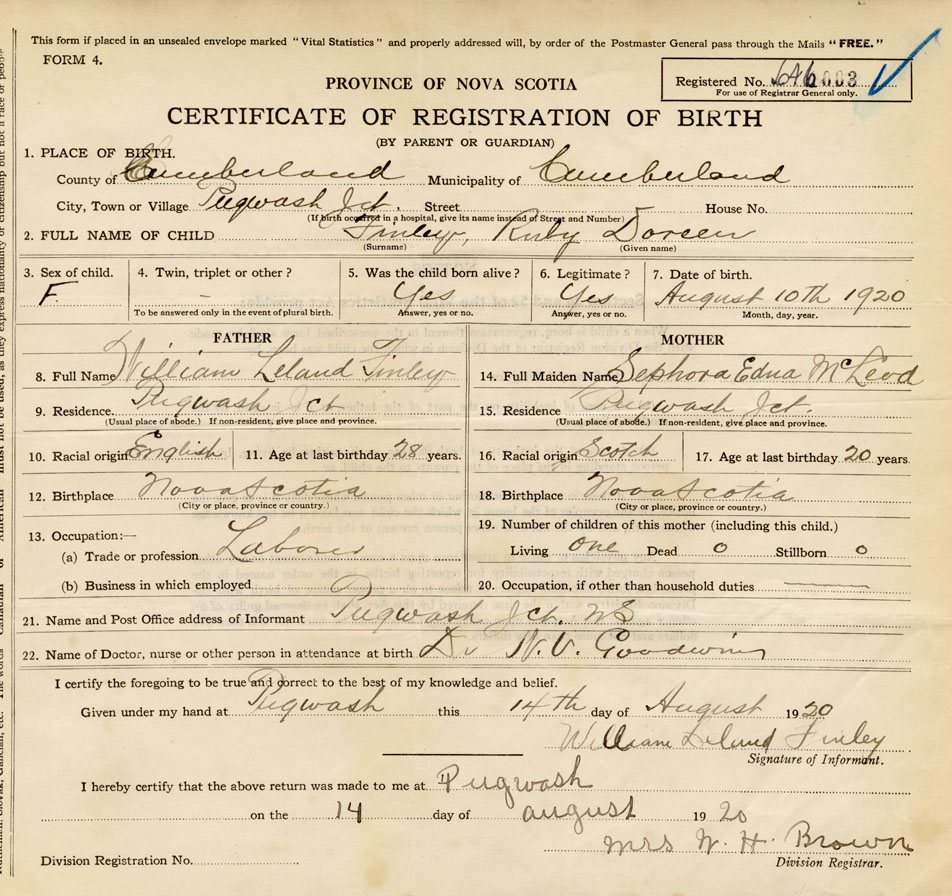 This form if placed in an unsealed envelope marked "Vital Statistics" and properly addressed will, by order of the Postmaster General pass through the Mails "FREE."
FORM 4.
Registered No. 003
For use of Registrar General only.
PROVINCE OF NOVA SCOTIA
CERTIFICATE OF REGISTRATION OF BIRTH
(BY PARENT OR GUARDIAN)
1. PLACE OF BIRTH.
County of Cumberland Municipality of Cumberland
City, Town or Village Pugwash Jct. Street House No.
(If birth occurred in a hospital, give its name instead of Street and Number)
2. FULL NAME OF CHILD Finley, Ruby Doreen
(Surname) (Given name)
3. Sex of child. 4. Twin, triplet or other? 5. Was the child born alive? 6. Legitimate? 7. Date of birth.
F. - Yes Yes August 10th 1920
To be answered only in the event of plural birth. Answer, yes or no. Answer, yes or no. Month, day, year.
FATHER
8. Full Name William Leland Finley
9. Residence. Pugwash Jct
(Usual place of abode.) If non-resident, give place and province.
10. Racial origin English 11. Age at last birthday 28 years.
12. Birthplace Nova Scotia
(City or place, province or country.)
13. Occupation:—
(a) Trade or profession Laborer
(b) Business in which employed
MOTHER
14. Full Maiden Name Sephora Edna McLeod
15. Residence Pugwash Jct.
(Usual place of abode.) If non-resident, give place and province.
16. Racial origin Scotch 17. Age at last birthday 20 years.
18. Birthplace Nova Scotia
(City or place, province or country.)
19. Number of children of this mother (including this child.)
Living one Dead 0 Stillborn 0
20. Occupation, if other than household duties
21. Name and Post Office address of Informant Pugwash Jct. NS
22. Name of Doctor, nurse or other person in attendance at birth Dr N. V. Goodwin
I certify the foregoing to be true and correct to the best of my knowledge and belief.
Given under my hand at Pugwash this 14th day of August 1920
William Leland Finley
Signature of Informant.
I hereby certify that the above return was made to me at Pugwash
on the 14 day of august 1920
Mrs W. H. Brown
Division Registrar.
Division Registration No.